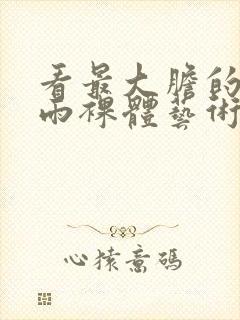 看最大膽的
雨裸體藝術
心猿意碼